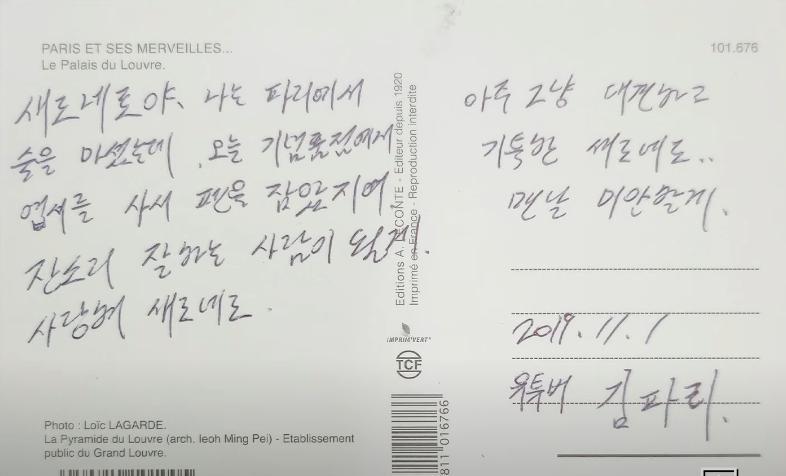 PARIS ET SES MERVEILLES...
Le Palais du Louvre.
101.676
새로네로야, 나는 파리에서
술을 마셨는데, 오늘 기념품점에서
엽서를 사서 펜을 잡았지여.
잔소리 잘하는 사람이 될게.
사랑혀 새로네로.
아주 그냥 대견하고
기특한 새로네로..
맨날 미안할게.
2019. 11. 1
유투버 김파리.
Editions A. LECONTE - Editeur depuis 1920
Imprimé en France - Reproduction interdite
IMPRIM'VERT®
TCF
811016766
Photo : Loïc LAGARDE.
La Pyramide du Louvre (arch. Ieoh Ming Pei) - Etablissement
public du Grand Louvre.